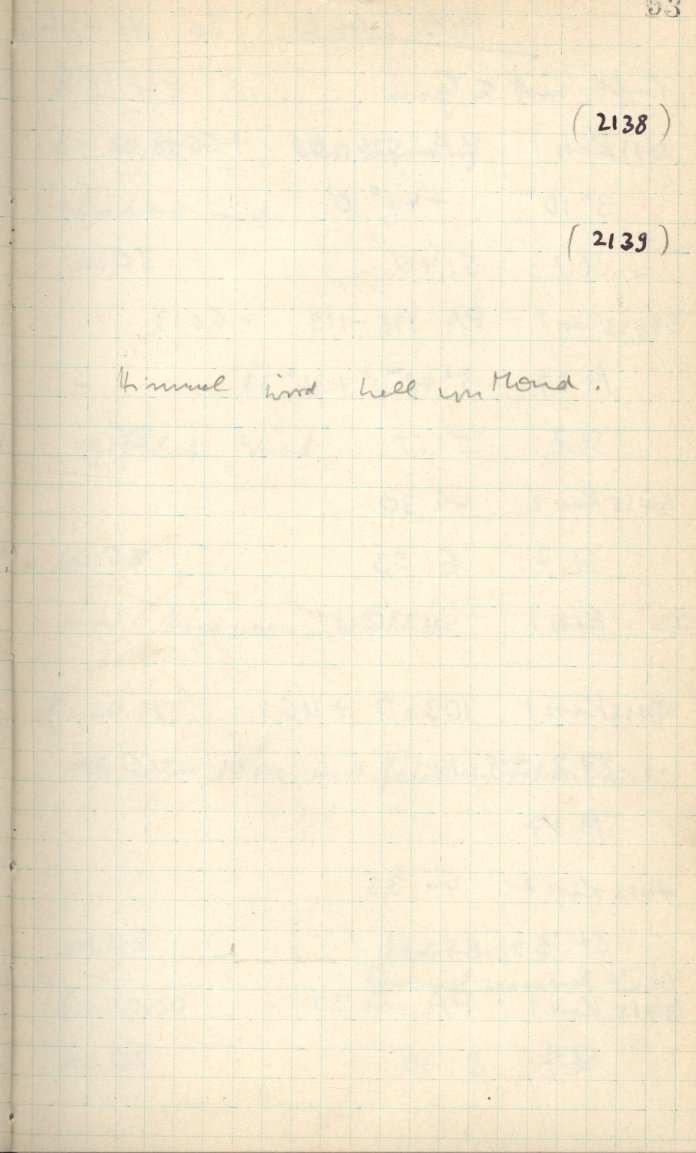 53
(2138)
(2139)
Himmel wird hell von Mond.